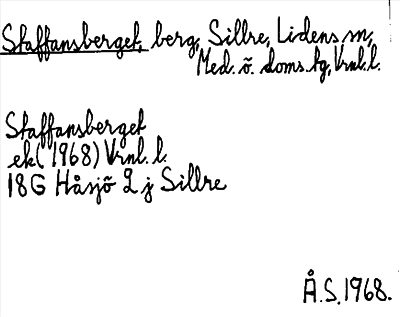 Staffansberget, berg, Sillre, Lidens sn,
Med. ö. doms. tg, Vrnl. l.
Staffansberget
ek (1968) Vrnl. l.
18G Håsjö 2 j Sillre
Å.S. 1968.